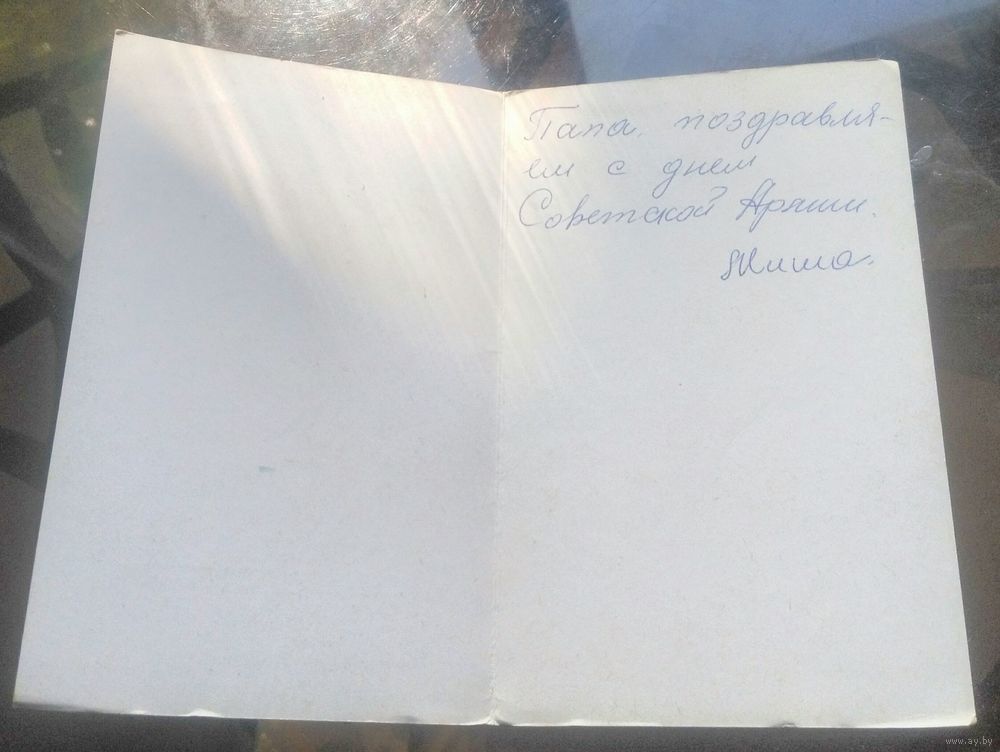 Папа, поздравля-
ем с днем
Советской Армии.
Миша.
www.ay.by